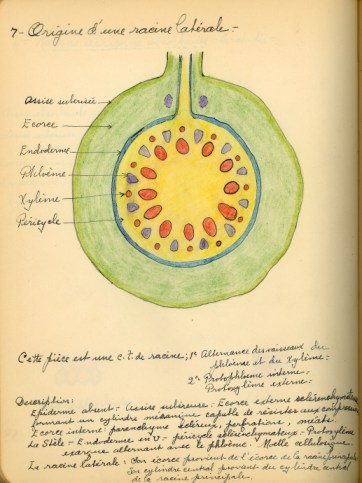 7 - Origine d'une racine latérale -
Assise subérisée
Ecorce
Endoderme
Phloème
Xylème
Péricycle
Cette pièce est une c.t. de racine; 1° Alternance des vaisseaux du
phloème et du xylème -
2° - Protophloème interne,
Protoxylème externe -
Description:
Epiderme absent - Assise subéreuse - Ecorce externe sclérenchymateuse
formant un cylindre mécanique capable de résister aux compressions
Ecorce interne: parenchyme scléreux, perforations, méats
La Stèle - Endoderme en U - péricycle sclérenchymateux - Protoxylème
exarque alternant avec le phloème - Moelle cellulosique
La racine latérale: Son écorce provient de l'écorce de la racine principale
Son cylindre central provient du cylindre central
de la racine principale.